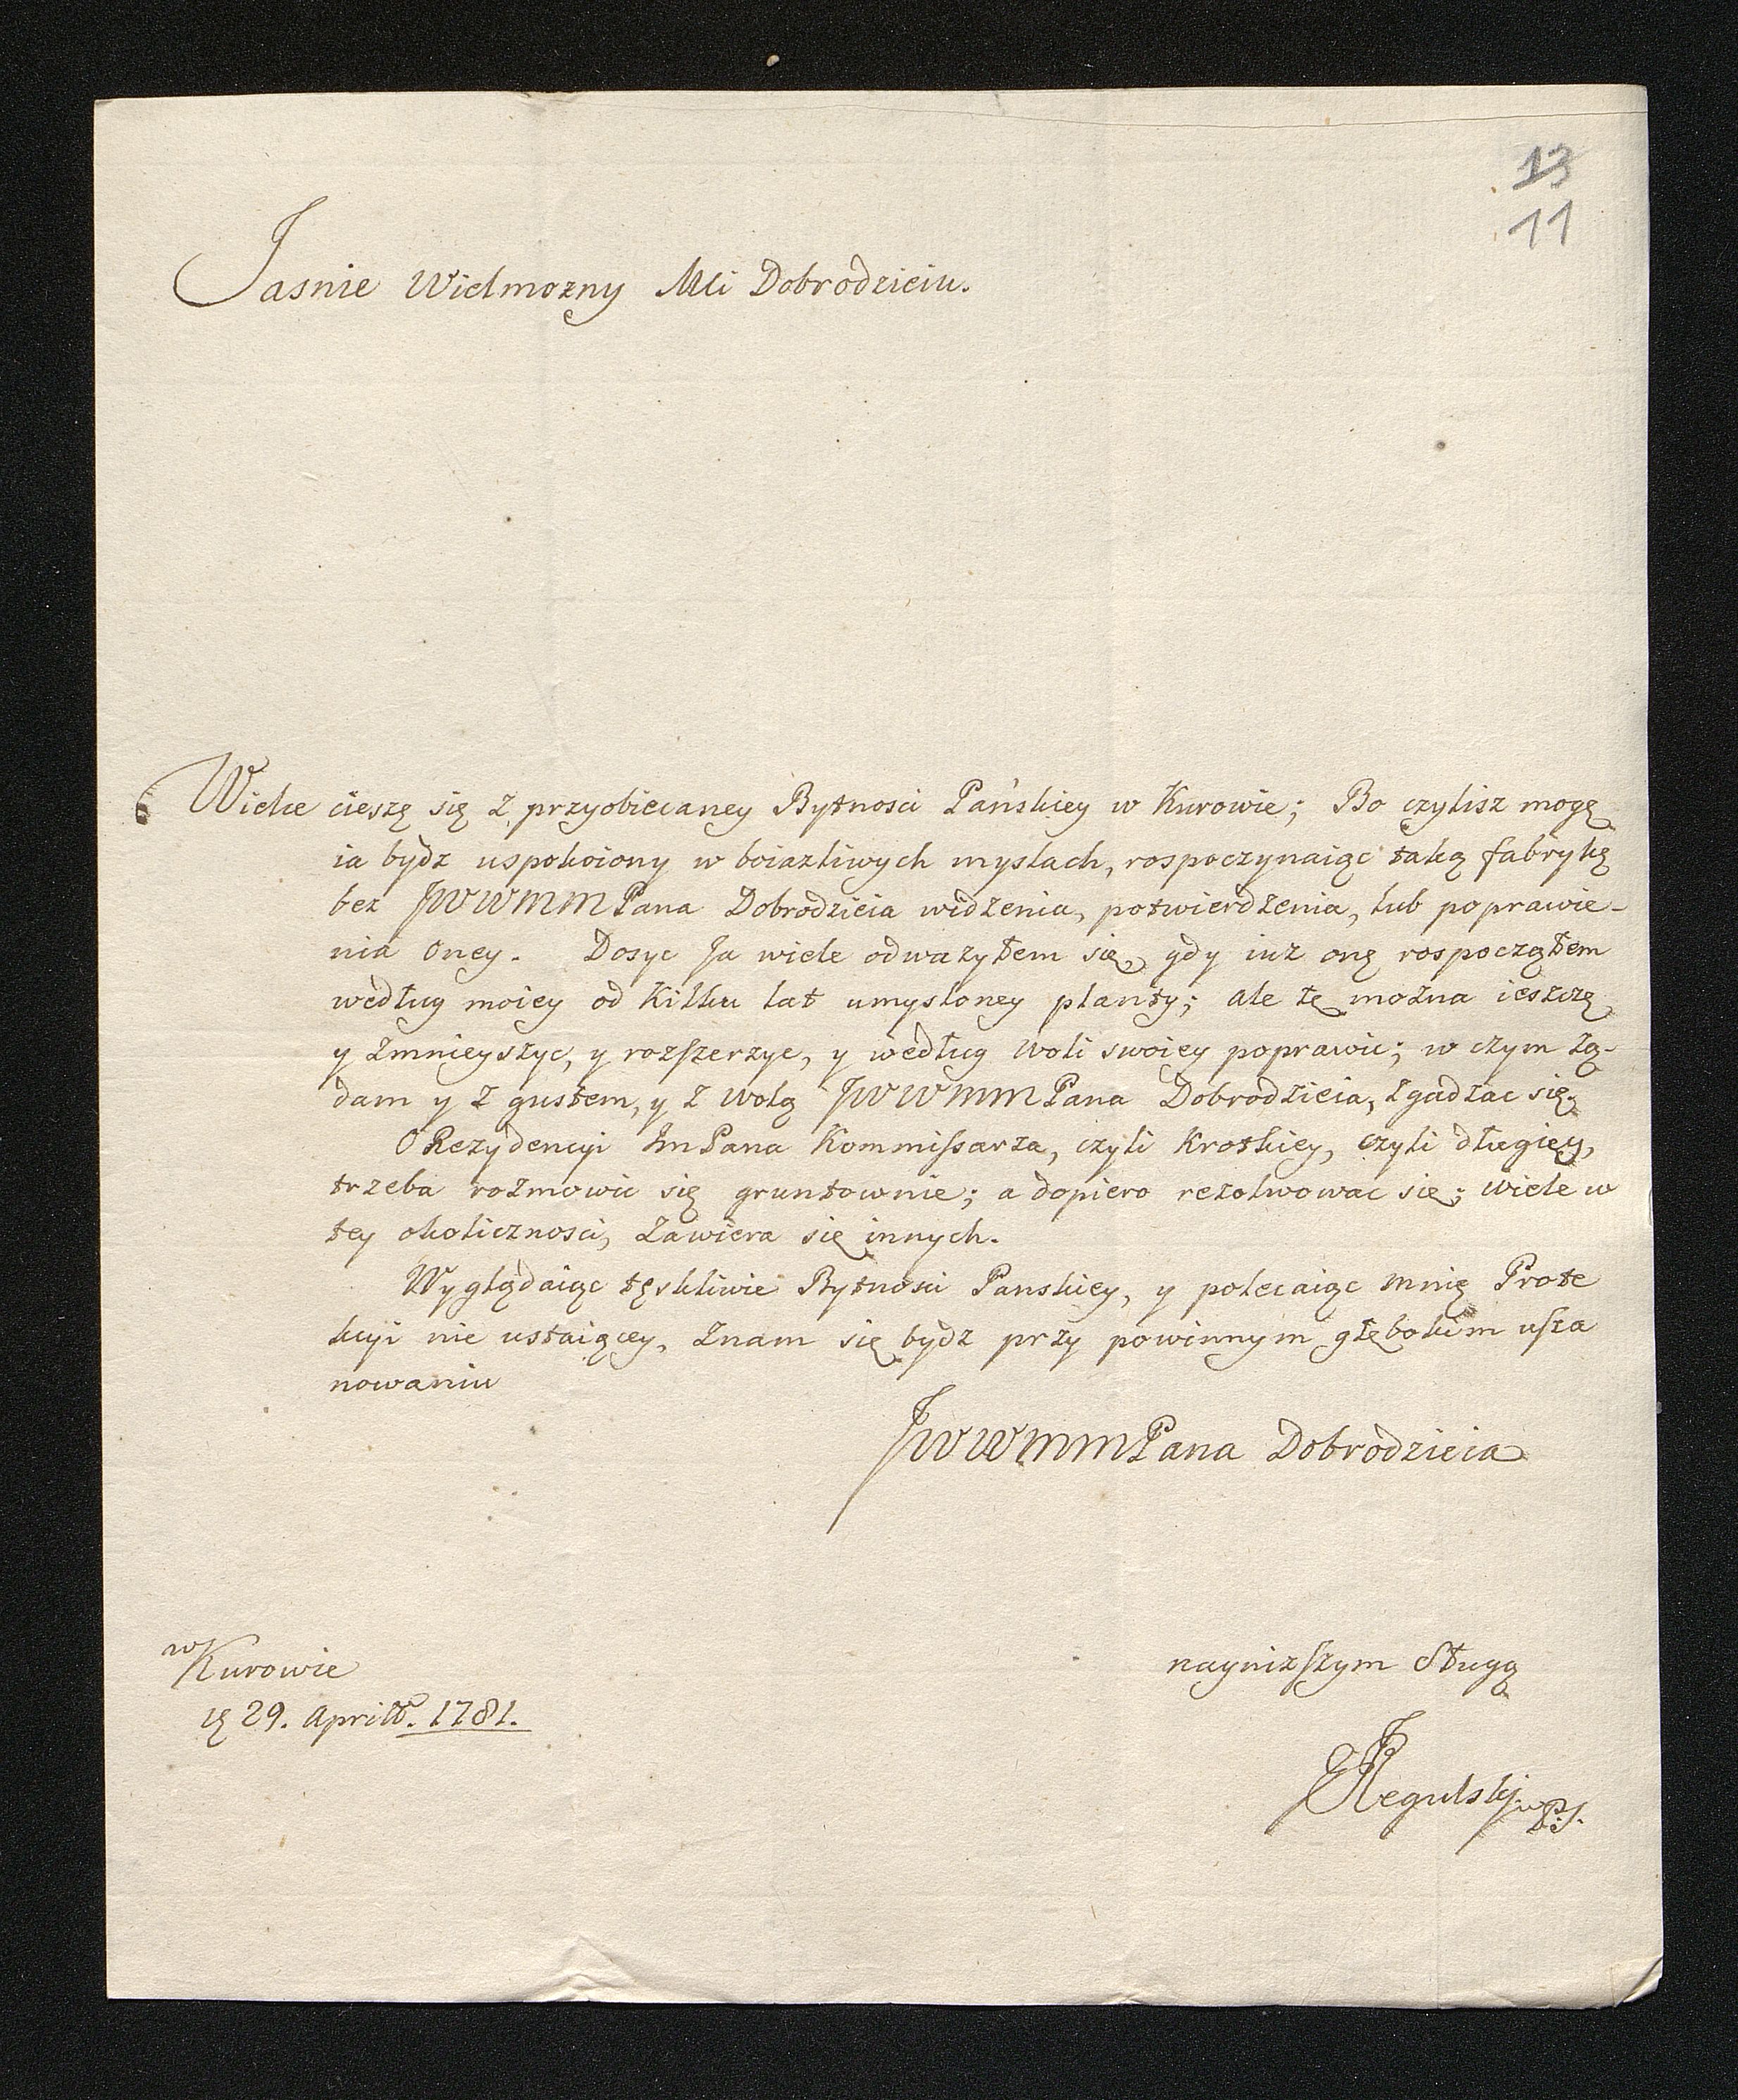 13
11
Jasnie Wielmozny Mci Dobrodzieiu.
Wielce cieszę się z przyobiecaney Bytnosci Pańskiey w Kurowie; Bo czylisz mogę
ia bydz uspokoiony w boiazliwych myslach, rospoczynaiąc taką fabrykę
bez JWWMMPana Dobrodzieia widzenia, potwierdzenia, lub poprawie-
nia oney. Dosyc Ja wiele odwazyłem się, gdy iuz onę rospocząłem
według moiey od Kilku lat umysloney planty; ale tę mozna ieszcze
y zmnieyszyc, y rozszerzyc, y według woli swoiey poprawic; w czym żą-
dam y z gustem, y z wolą JWWMMPana Dobrodzieia, zgadzac się.
O Rezydencyi ImPana Kommissarza, czyli krotkiey, czyli długiey,
trzeba rozmowic się gruntownie; a dopiero rezolwowac się; wiele w
tey okolicznosci, zawiera się innych.
Wyglądaiąc tęskliwie Bytnosci Panskiey, y polecaiąc mnię Prote
kcyi nie ustaiącey, znam się bydz przy powinnym głębokim usza
nowaniu
JWWMMPana Dobrodzieia
w Kurowie
29. Aprill. 1781.
nayniższym Sługą
Regulski